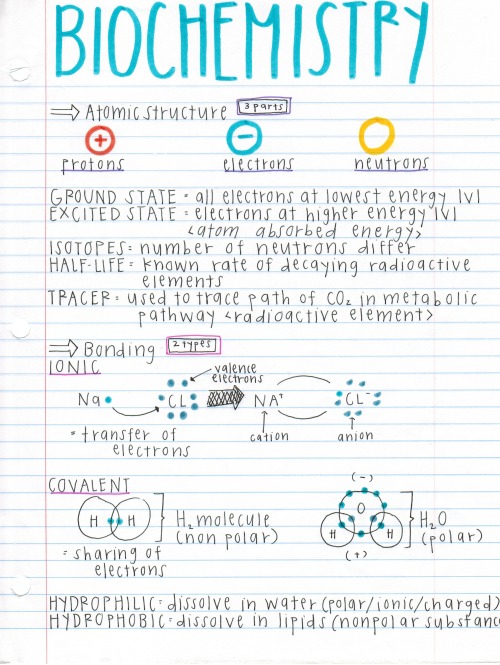 BIOCHEMISTRY
⇒ Atomic structure 3 parts
+ −
protons electrons neutrons
GROUND STATE = all electrons at lowest energy lvl
EXCITED STATE = electrons at higher energy lvl
<atom absorbed energy>
ISOTOPES = number of neutrons differ
HALF-LIFE = known rate of decaying radioactive
elements
TRACER = used to trace path of CO₂ in metabolic
pathway <radioactive element>
⇒ Bonding 2 types
IONIC
valence
electrons
Na CL NA⁺ CL⁻
= transfer of
electrons
cation anion
COVALENT
H H
H₂ molecule
(non polar)
= sharing of
electrons
(-)
O
H H
(+)
H₂O
(polar)
HYDROPHILIC = dissolve in water (polar/ionic/charged)
HYDROPHOBIC = dissolve in lipids (nonpolar substanc